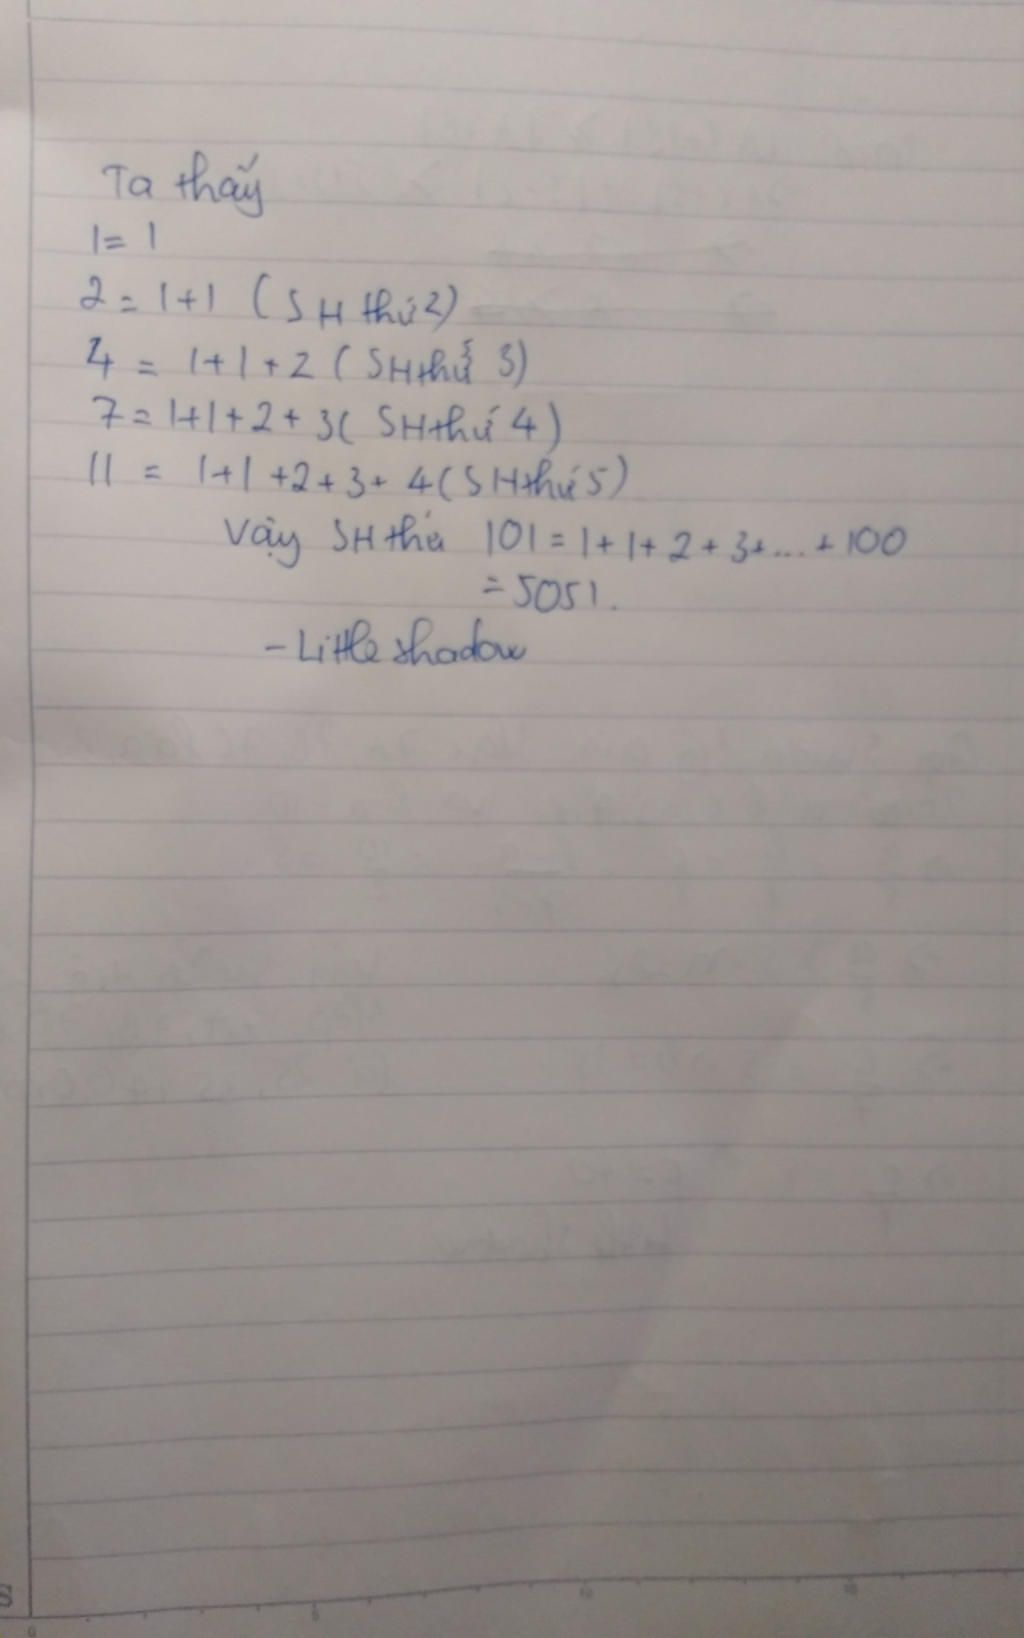 Ta thấy
1 = 1
2 = 1+1 (SH thứ 2)
4 = 1+1+2 (SH thứ 3)
7 = 1+1+2+3 (SH thứ 4)
11 = 1+1+2+3+4 (SH thứ 5)
Vậy SH thứ 101 = 1+1+2+3+...+100
= 5051.
- Little shadow